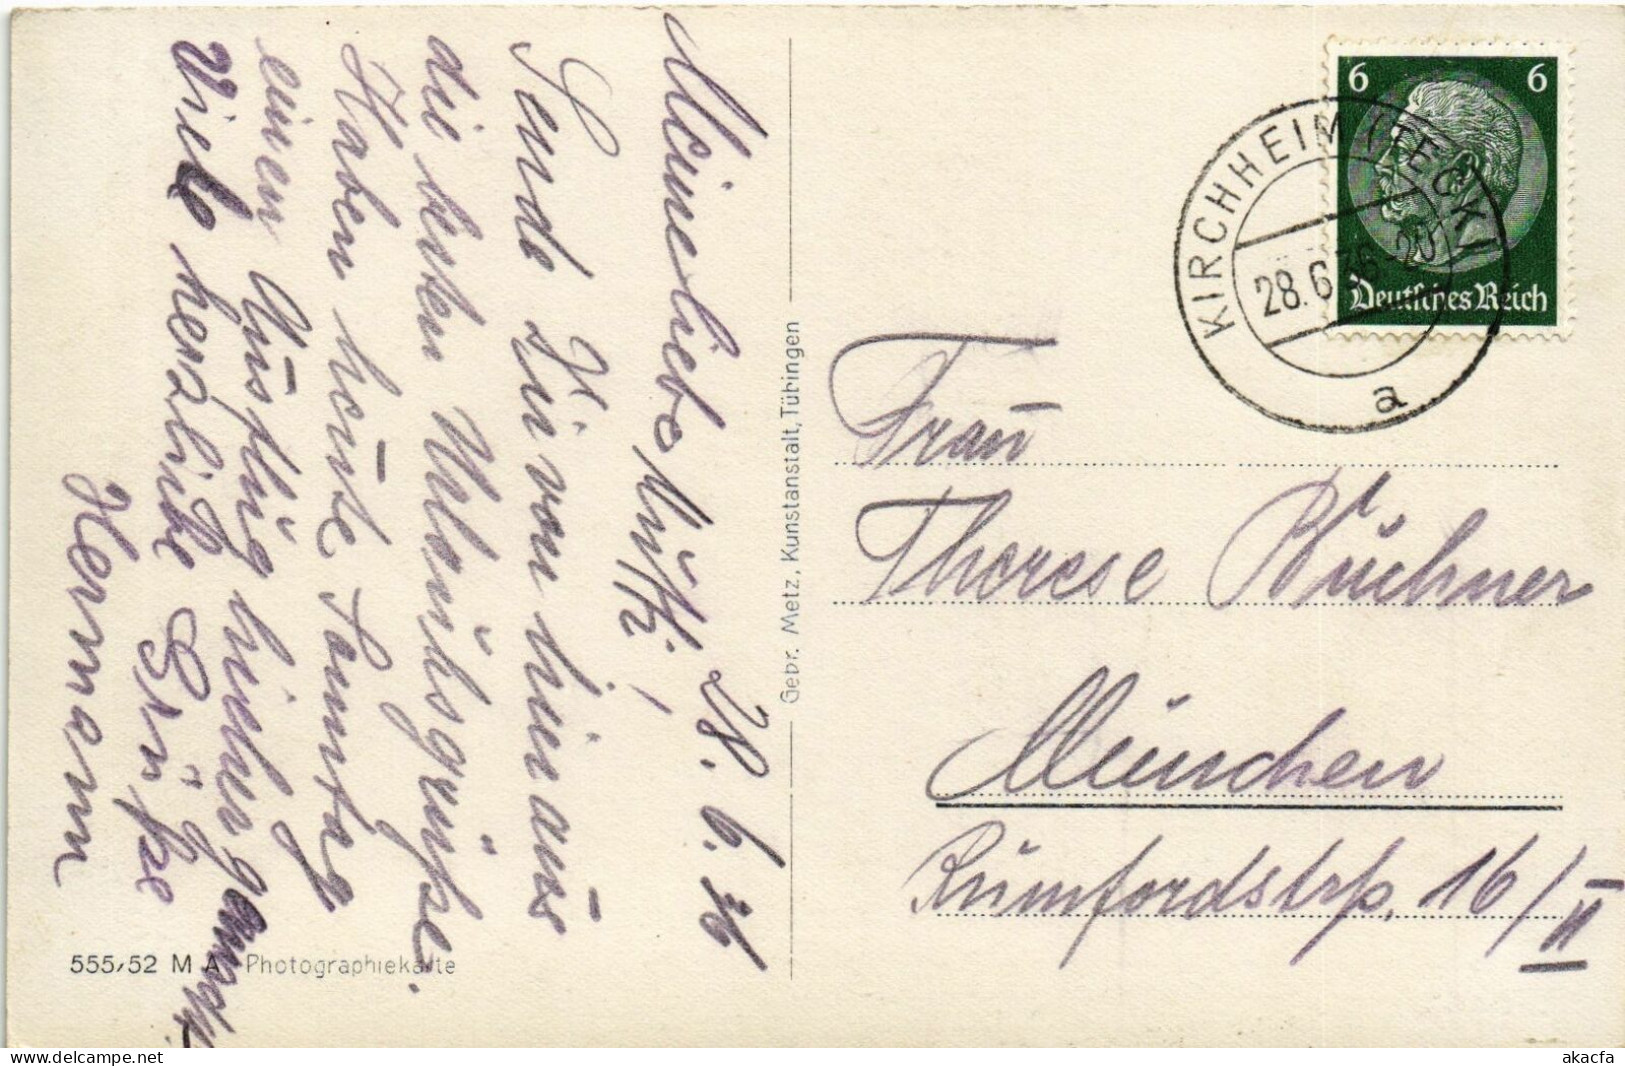 28. 6. 36
Meine liebe Mutti,
Sende Dir von hier aus
die besten Urlaubsgrüße.
Haben heute Sonntag
einen Ausflug hierher gemacht.
Viele herzliche Grüße
Hermann
555/52 M A Photographiekarte
Gebr. Metz, Kunstanstalt, Tübingen
6 6
Deutsches Reich
KIRCHHEIM (TECK)
28.6.36 20
a
Frau
Therese Büchner
München
Rumfordstrs. 16/II
www.delcampe.net
akacfa